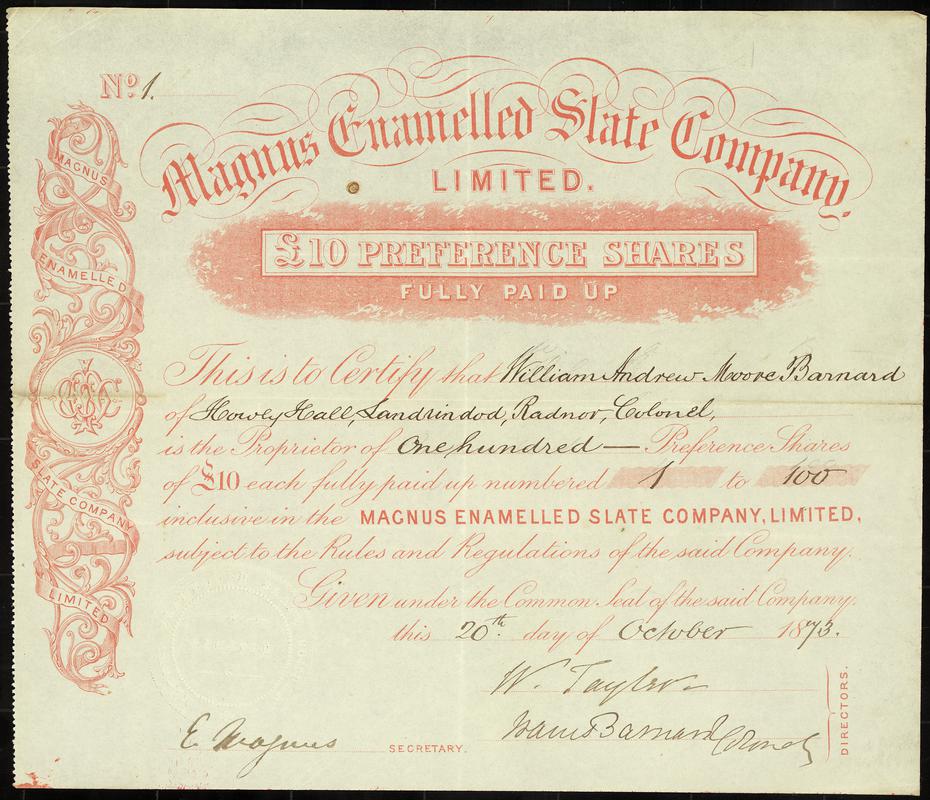 No. 1.
Magnus Enamelled Slate Company,
LIMITED.
£10 PREFERENCE SHARES
FULLY PAID UP
MAGNUS
ENAMELLED
SLATE COMPANY
LIMITED
This is to Certify that William Andrew Moore Barnard
of Howey Hall, Landrindod, Radnor, Colonel,
is the Proprietor of One hundred — Preference Shares
of £10 each fully paid up numbered 1 to 100
inclusive in the MAGNUS ENAMELLED SLATE COMPANY, LIMITED,
subject to the Rules and Regulations of the said Company.
Given under the Common Seal of the said Company.
this 20th. day of October 1873.
W. Taylor
Barnard Colonel
DIRECTORS.
E. Magnus SECRETARY.